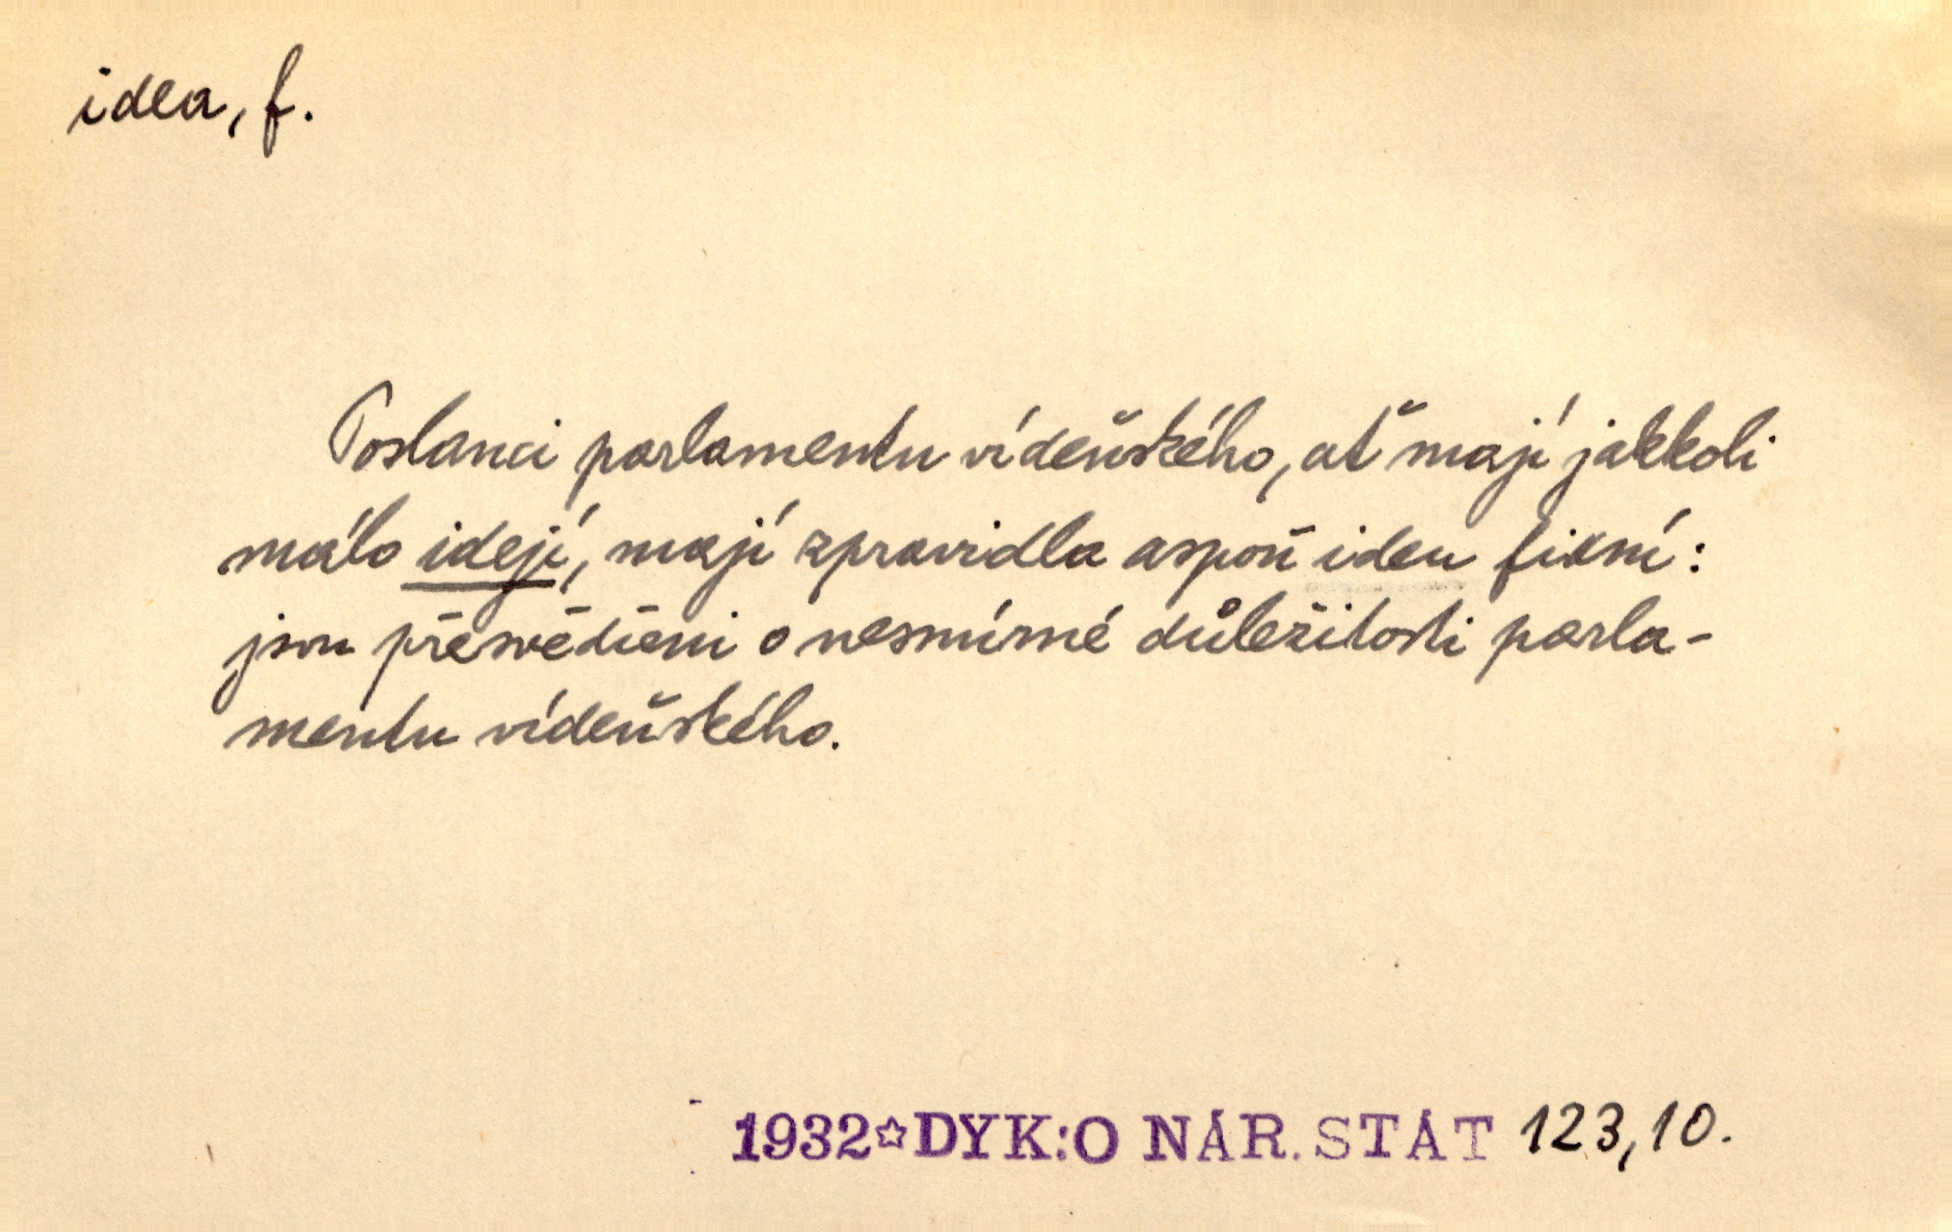 idea, f.
Poslanci parlamentu vídeňského, ať mají jakkoli
málo idejí, mají zpravidla aspoň ideu fixní:
jsou přesvědčeni o nesmírné důležitosti parla-
mentu vídeňského.
1932☆DYK:O NÁR. STÁT 123,10.